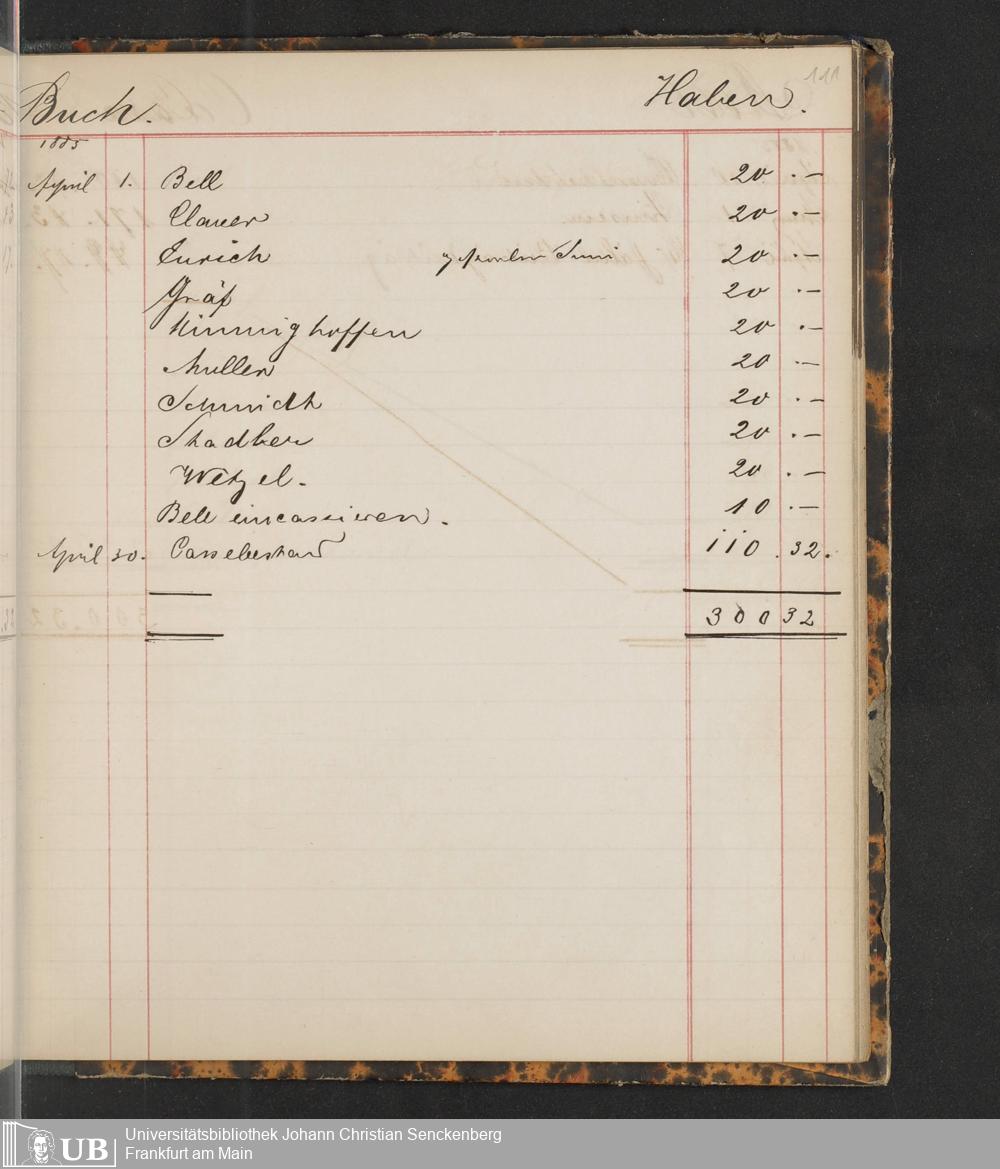 111
Buch. Haben.
1885
April 1. Bell 20 . –
Clauer 20 . –
Enrich gestorben Juni 20 . –
Gräf 20 . –
Hinninghoffen 20 . –
Muller 20 . –
Schmidt 20 . –
Stadler 20 . –
Wetzel. 20 . –
Bell eincassieren. 10 . –
April 30. Cassebestand 110 . 32.
300 32
UB
Universitätsbibliothek Johann Christian Senckenberg
Frankfurt am Main